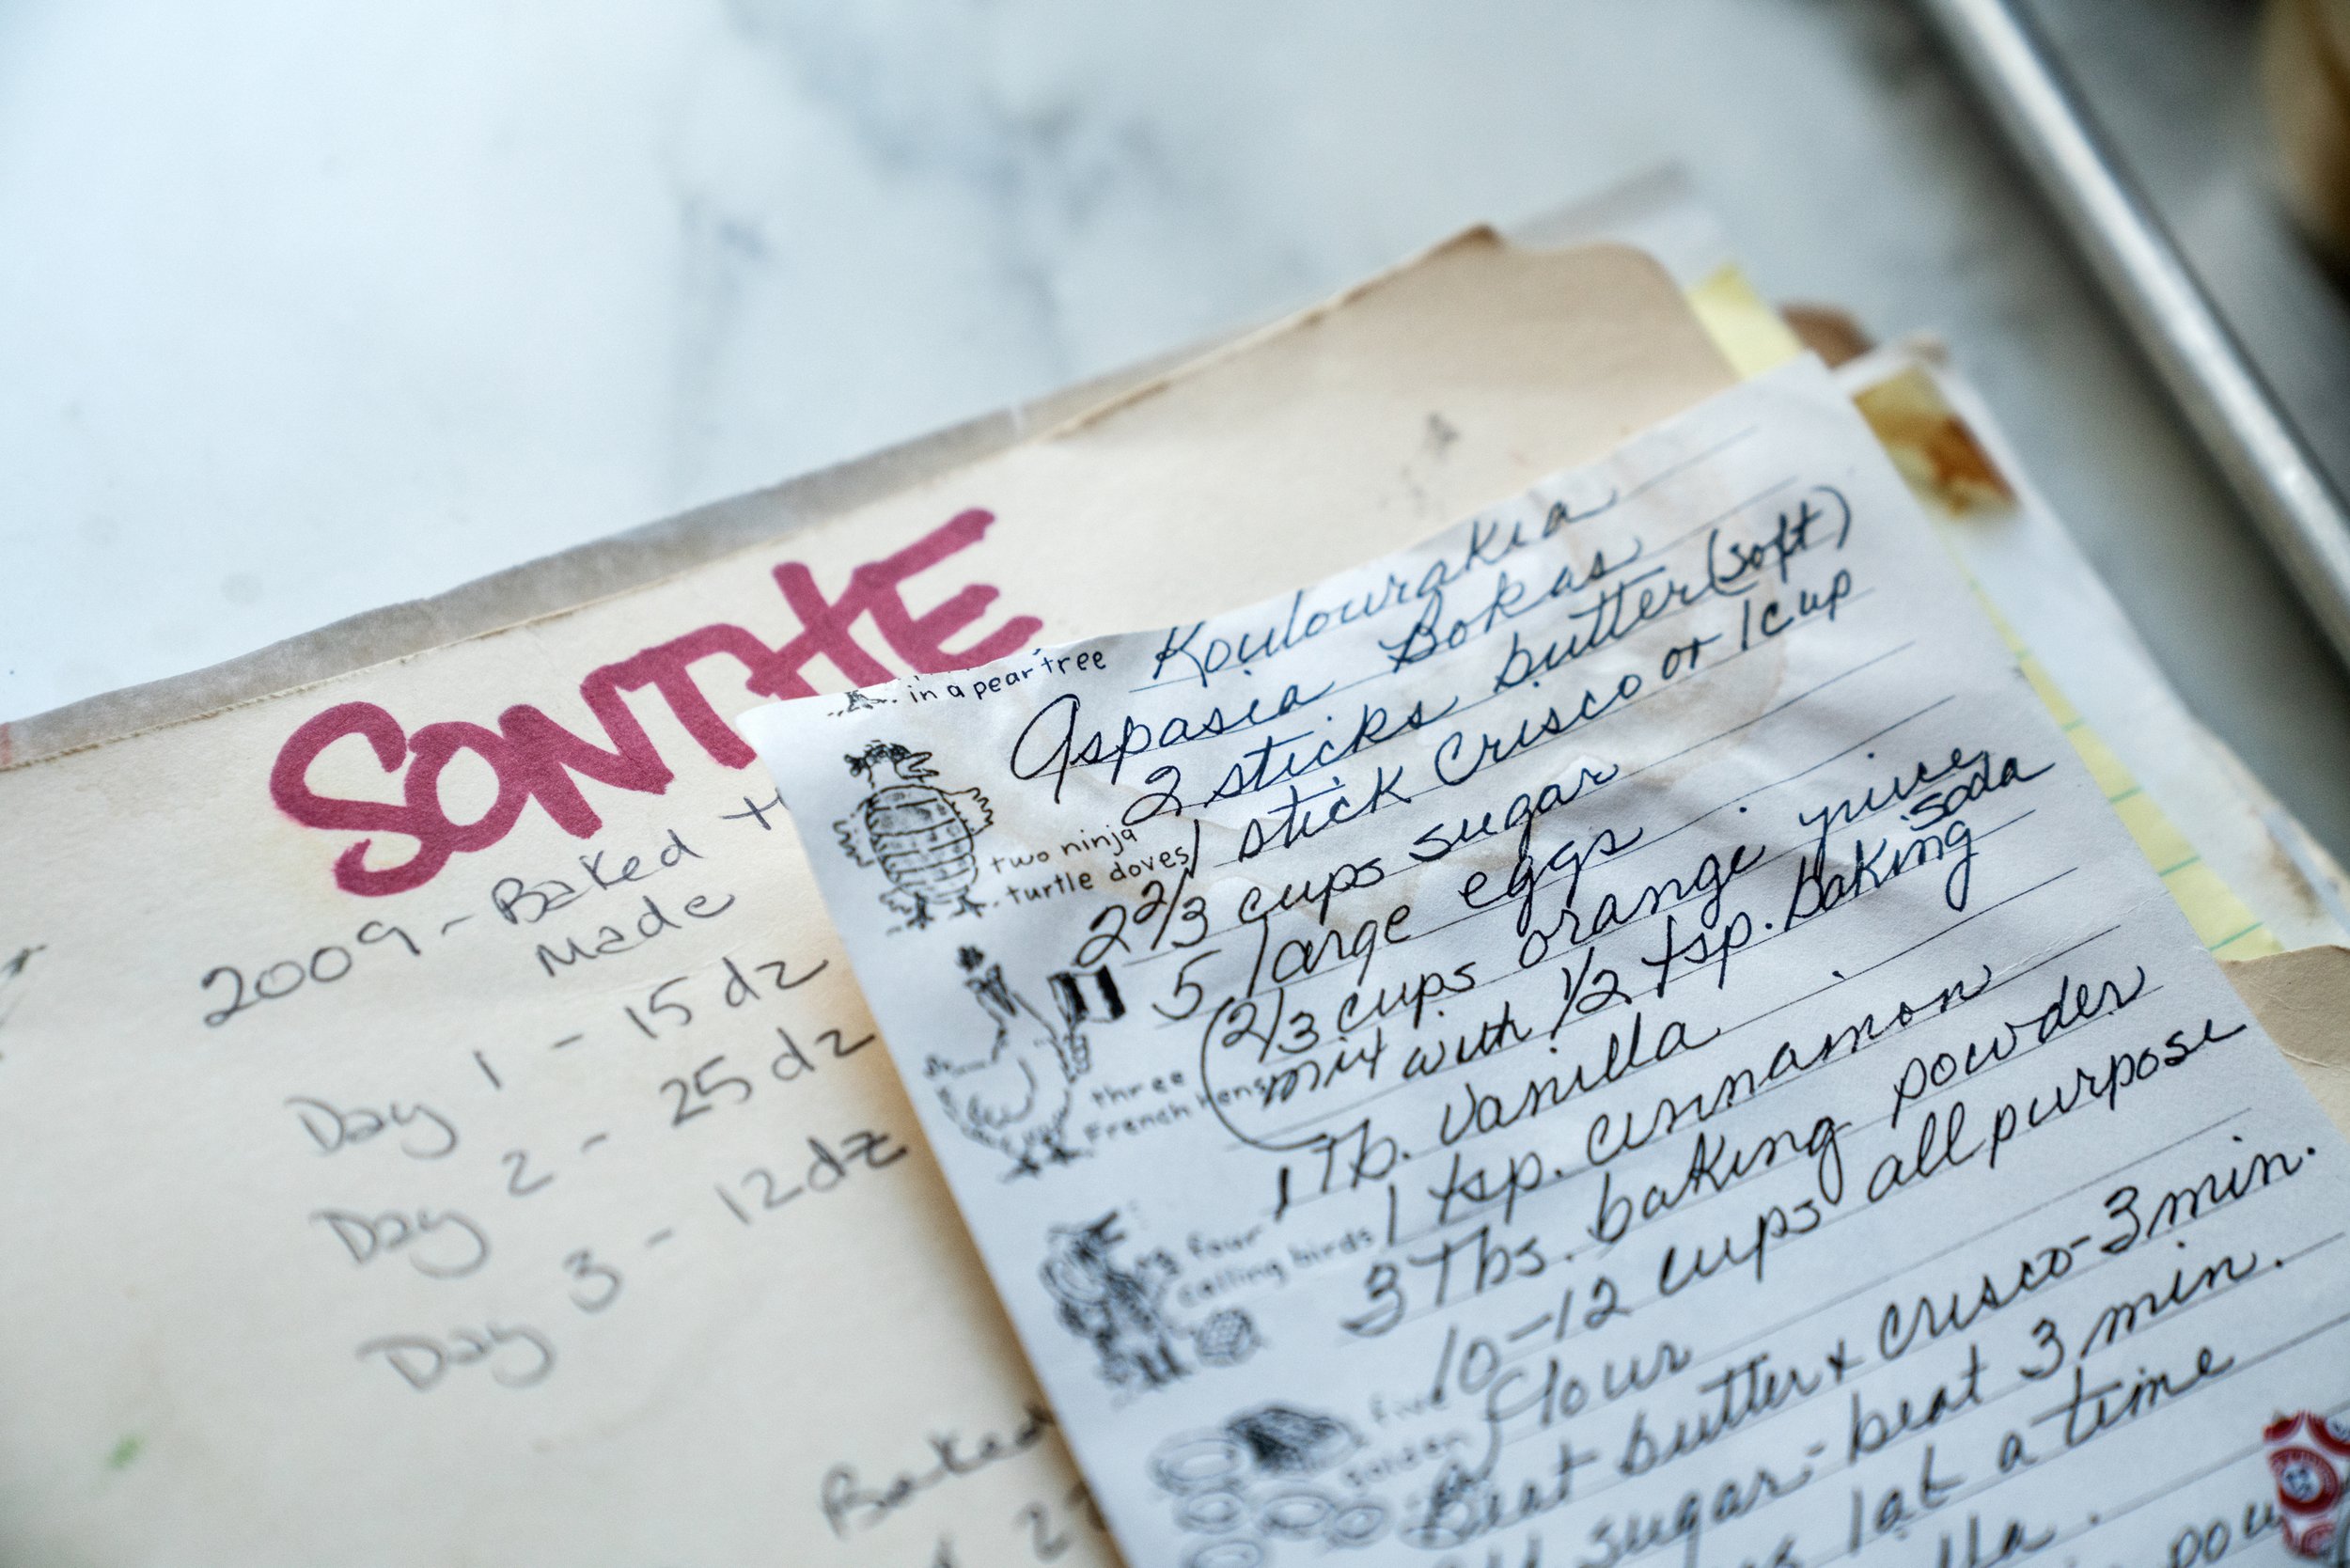 SONTHE
2009 - Baked +
Made
Day 1 - 15 dz
Day 2 - 25 dz
Day 3 - 12 dz
Baked
in a pear tree
two ninja
turtle doves
three
French hens
four
calling birds
five
golden
Koulourakia
Aspasia Bokas
2 sticks butter (soft)
1 stick Crisco or 1 cup
2 2/3 cups sugar
5 large eggs
2/3 cups orange juice
mix with 1/2 tsp. baking soda
1 Tb. vanilla
1 tsp. cinnamon
3 Tbs. baking powder
10-12 cups all purpose
flour
Beat butter + crisco - 3 min.
sugar - beat 3 min.
1 at a time